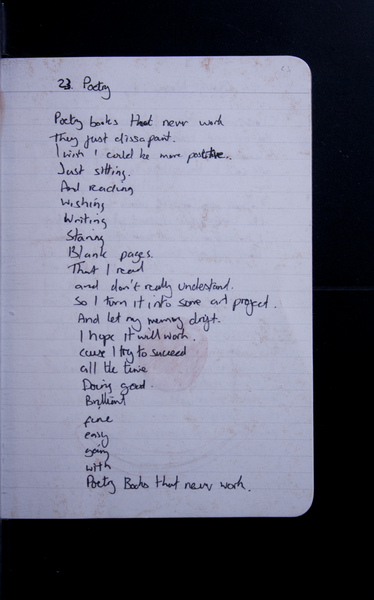 23. Poetry
Poetry books that never work
They just dissapoint.
I wish I could be more positive.
Just sitting.
And reading
Wishing
Writing
Staring
Blank pages.
That I read
and don't really understand.
So I turn it into some art project.
And let my memory drift.
I hope it will work.
cause I try to succeed
all the time
Doing good.
Brilliant
fine
easy
going
with
Poetry Books that never work.